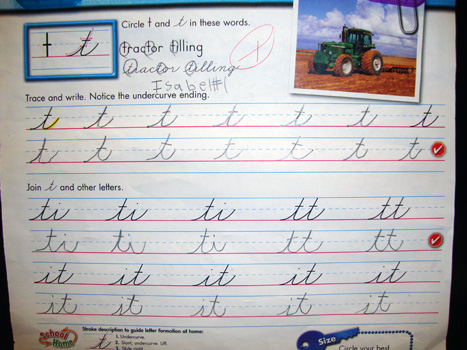 t t
Circle t and t in these words.
tractor tilling
tractor tilling
Isabel #1
Trace and write. Notice the undercurve ending.
t t t t t t t
t t t t t t t t
Join t and other letters.
ti ti ti tt tt
ti ti ti tt tt
it it it it it
it it it it it
School Home
Stroke description to guide letter formation at home:
t
1. Undercurve.
2. Slant, undercurve. Lift.
3. Slide right.
Size
Circle your best